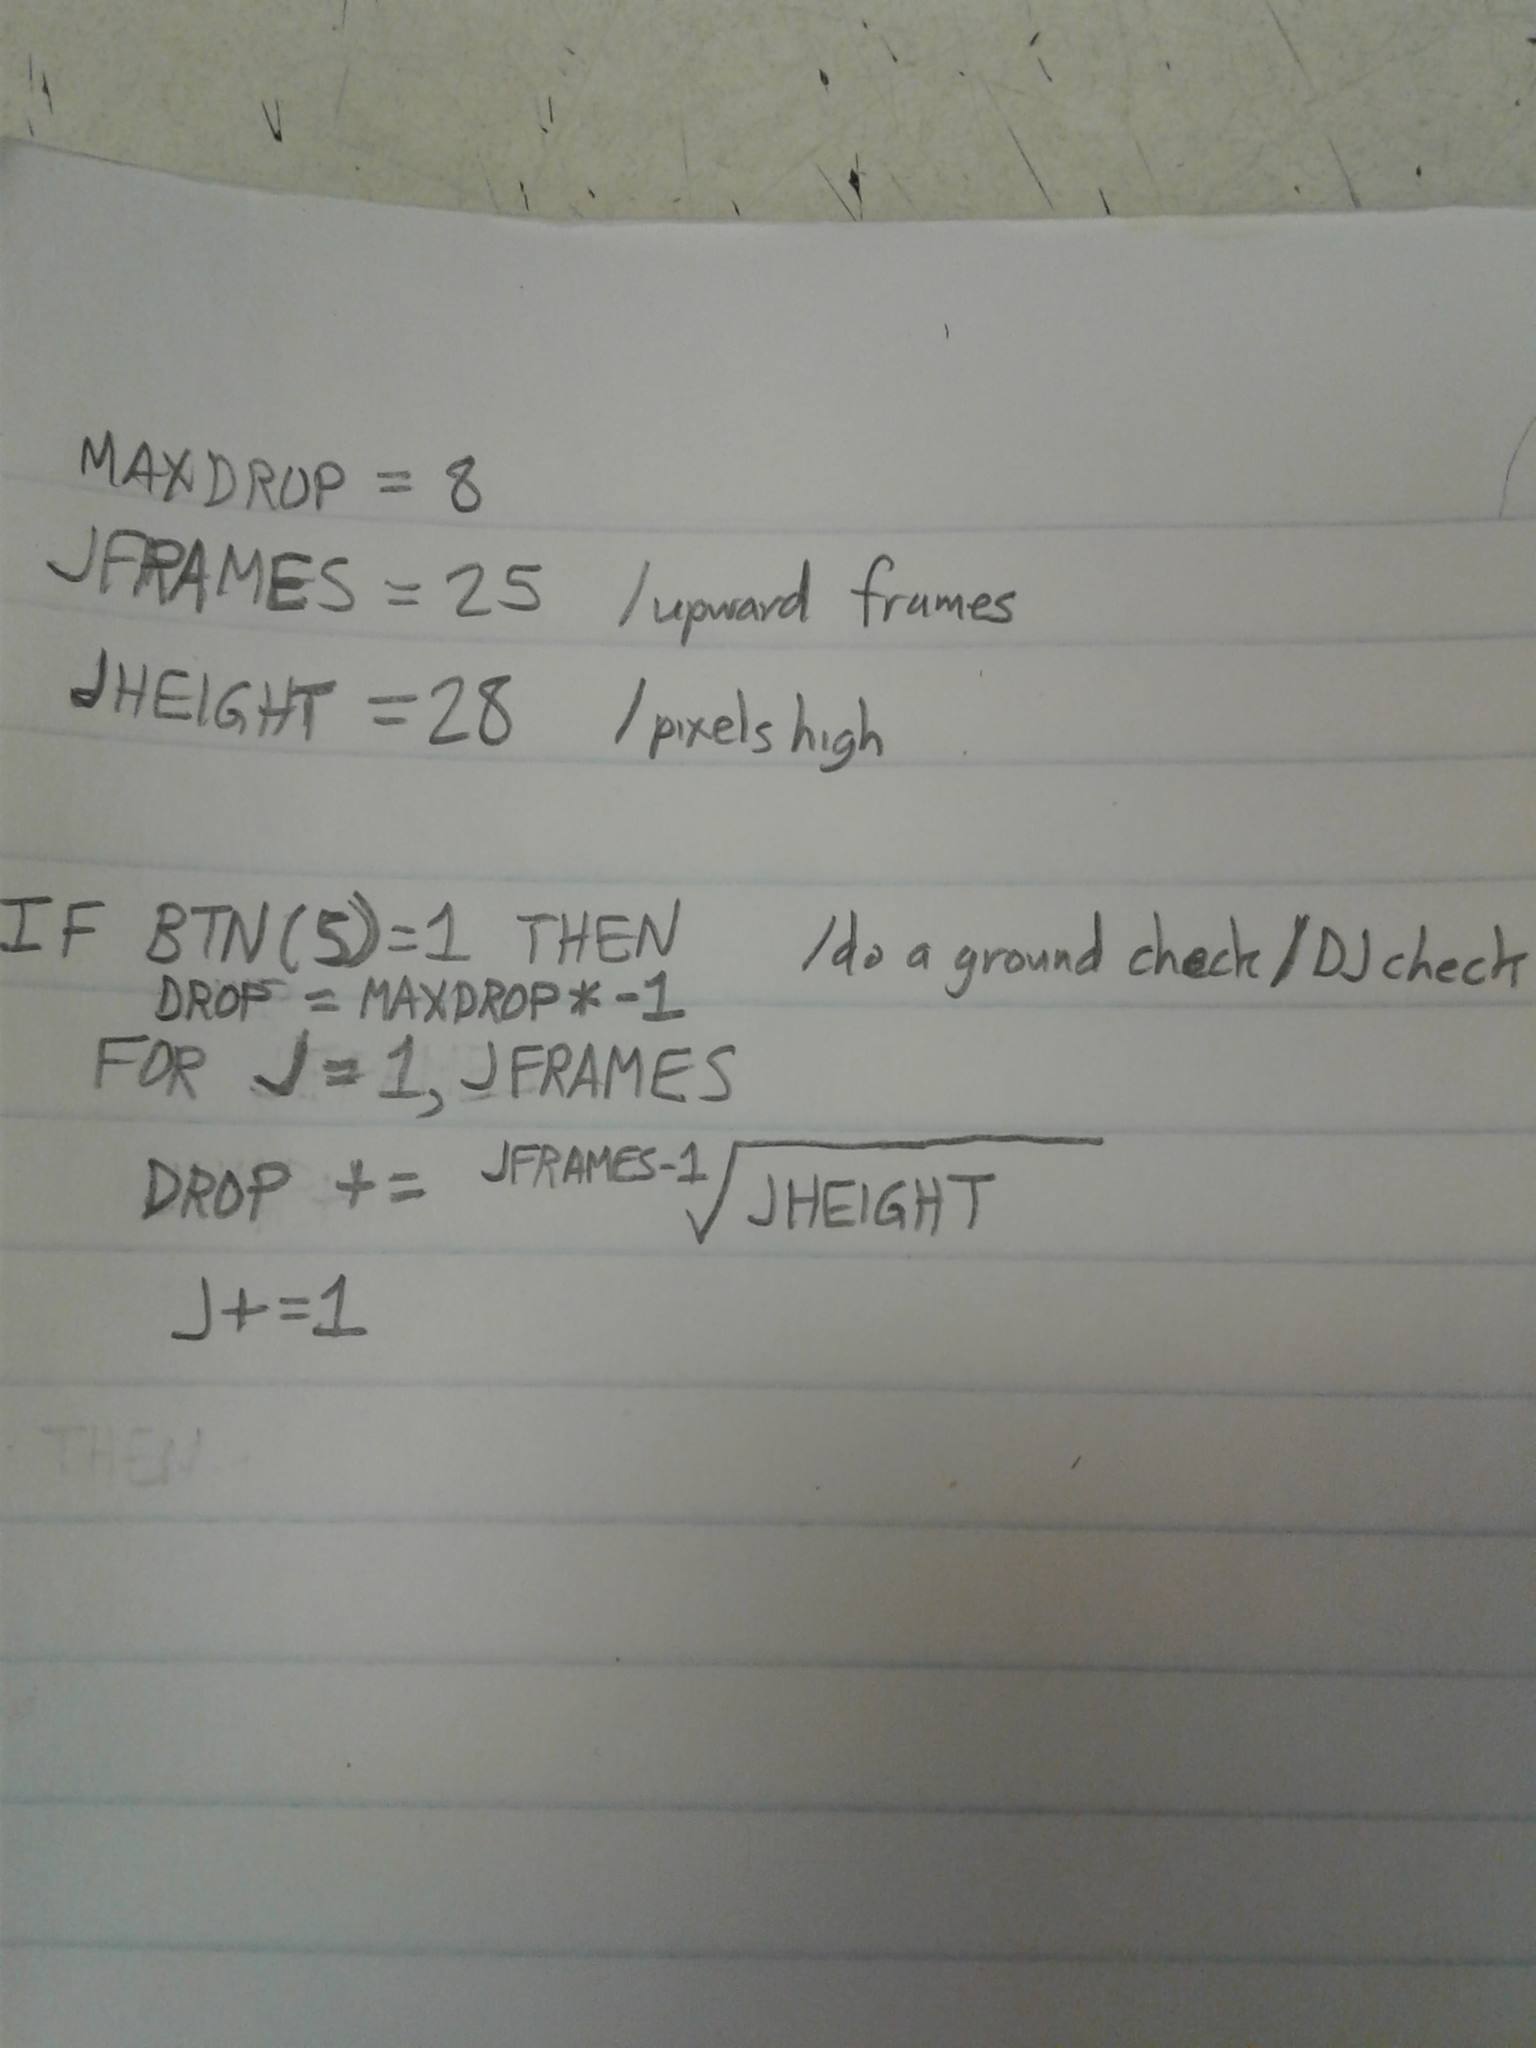 MAXDROP = 8
JFRAMES = 25 /upward frames
JHEIGHT = 28 /pixels high
IF BTN(5)=1 THEN /do a ground check/DJ check
DROP = MAXDROP * -1
FOR J = 1, JFRAMES
DROP += JFRAMES-1√JHEIGHT
J+=1
THEN